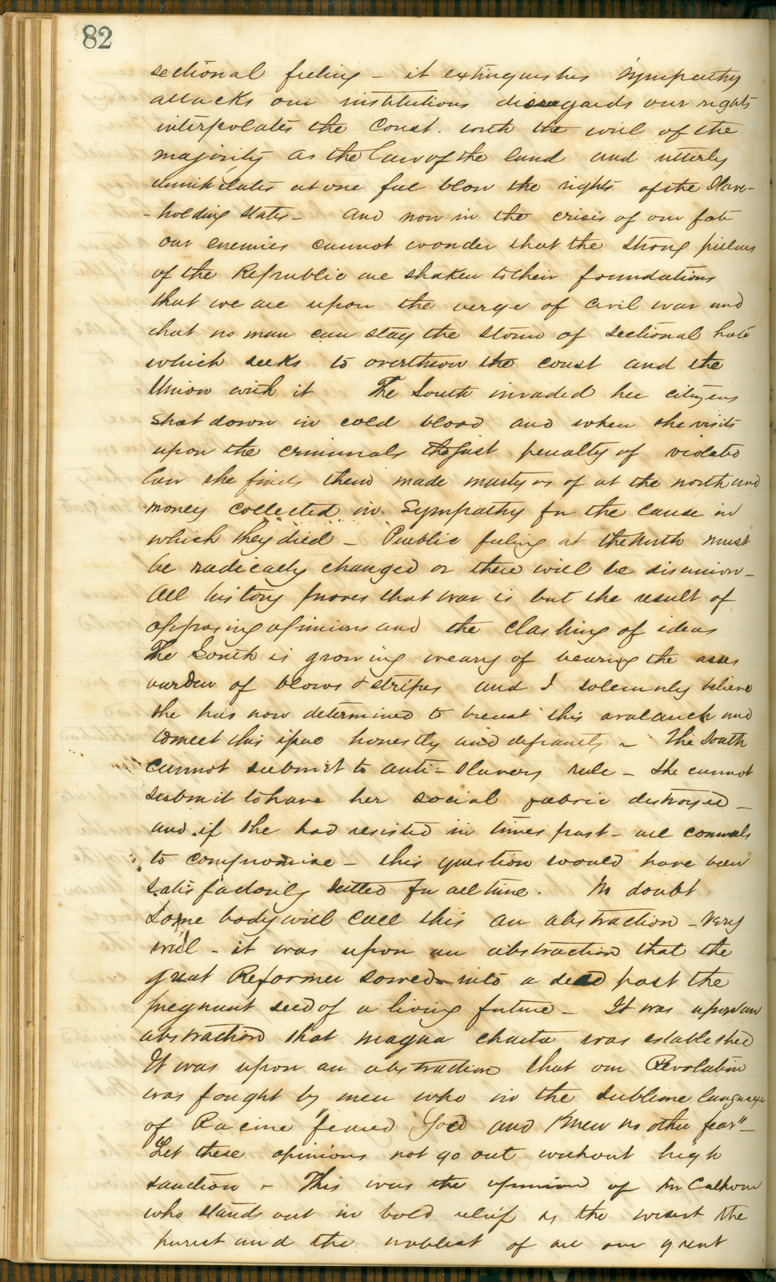 82
sectional feeling - it extinguishes sympathy
attacks our institutions disregards our rights
interpolates the Const. with the will of the
majority as the law of the land and utterly
annihilates at one fell blow the rights of the Slave-
-holding States - And now in the crisis of our fate
our enemies cannot wonder that the strong pillars
of the Republic are shaken to their foundations
that we are upon the verge of civil war and
that no man can stay the storm of sectional hate
which seeks to overthrow the const and the
Union with it The South invaded her citizens
shot down in cold blood and when she visits
upon the criminals the just penalty of violated
law she finds them made martyrs of at the north and
money collected in sympathy for the cause in
which they died - Public feeling at the North must
be radically changed or there will be disunion -
All history proves that war is but the result of
opposing opinions and the clashing of ideas
The South is growing weary of bearing the
burden of blows & stripes and I solemnly believe
she has now determined to breast this avalanch and
to meet this issue honestly and defiantly - The South
cannot submit to anti-Slavery rule - She cannot
submit to have her social fabric destroyed -
and if she had resisted in times past - all counsels
to compromise - this question would have been
satisfactorily settled for all time. No doubt
some body will call this an abstraction - Very
well - it was upon an abstraction that the
great Reformer sowed into a dead past the
pregnant seed of a living future - It was upon an
abstraction that magna charta was established
It was upon an abstraction that our Revolution
was fought by men who in the sublime language
of Racine "feared God and knew no other fear" -
Let these opinions not go out without high
sanction - This was the opinion of Mr Calhoun
who stands out in bold relief as the wisest the
purest and the noblest of all our great